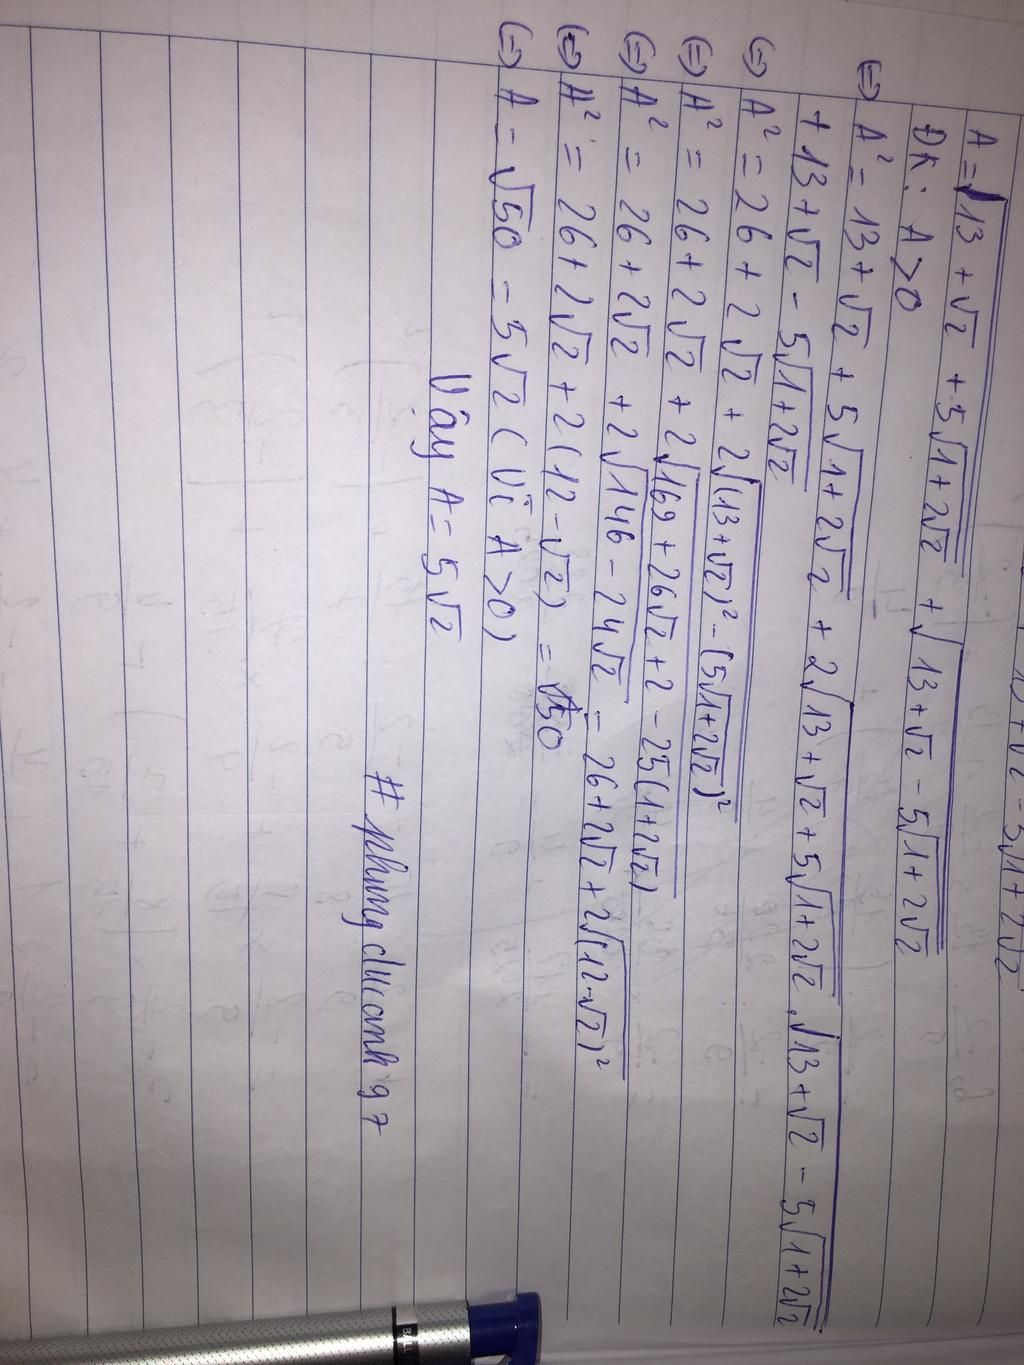 13 + √2 - 5√1 + 2√2
A = √13 + √2 + 5√1+2√2 + √13 + √2 - 5√1+2√2
ĐK: A > 0
(=) A² = 13 + √2 + 5√1+2√2 + 2√13 + √2 + 5√1+2√2 . √13 + √2 - 5√1+2√2
+ 13 + √2 - 5√1+2√2
(=) A² = 26 + 2√2 + 2√(13+√2)² - (5√1+2√2)²
(=) A² = 26 + 2√2 + 2√169 + 26√2 + 2 - 25(1+2√2)
(=) A² = 26 + 2√2 + 2√146 - 24√2 = 26 + 2√2 + 2√(12-√2)²
(=) A² = 26 + 2√2 + 2(12 - √2) = √50
(=) A = √50 = 5√2 (Vì A > 0)
Vậy A = 5√2
# phung duc anh 97